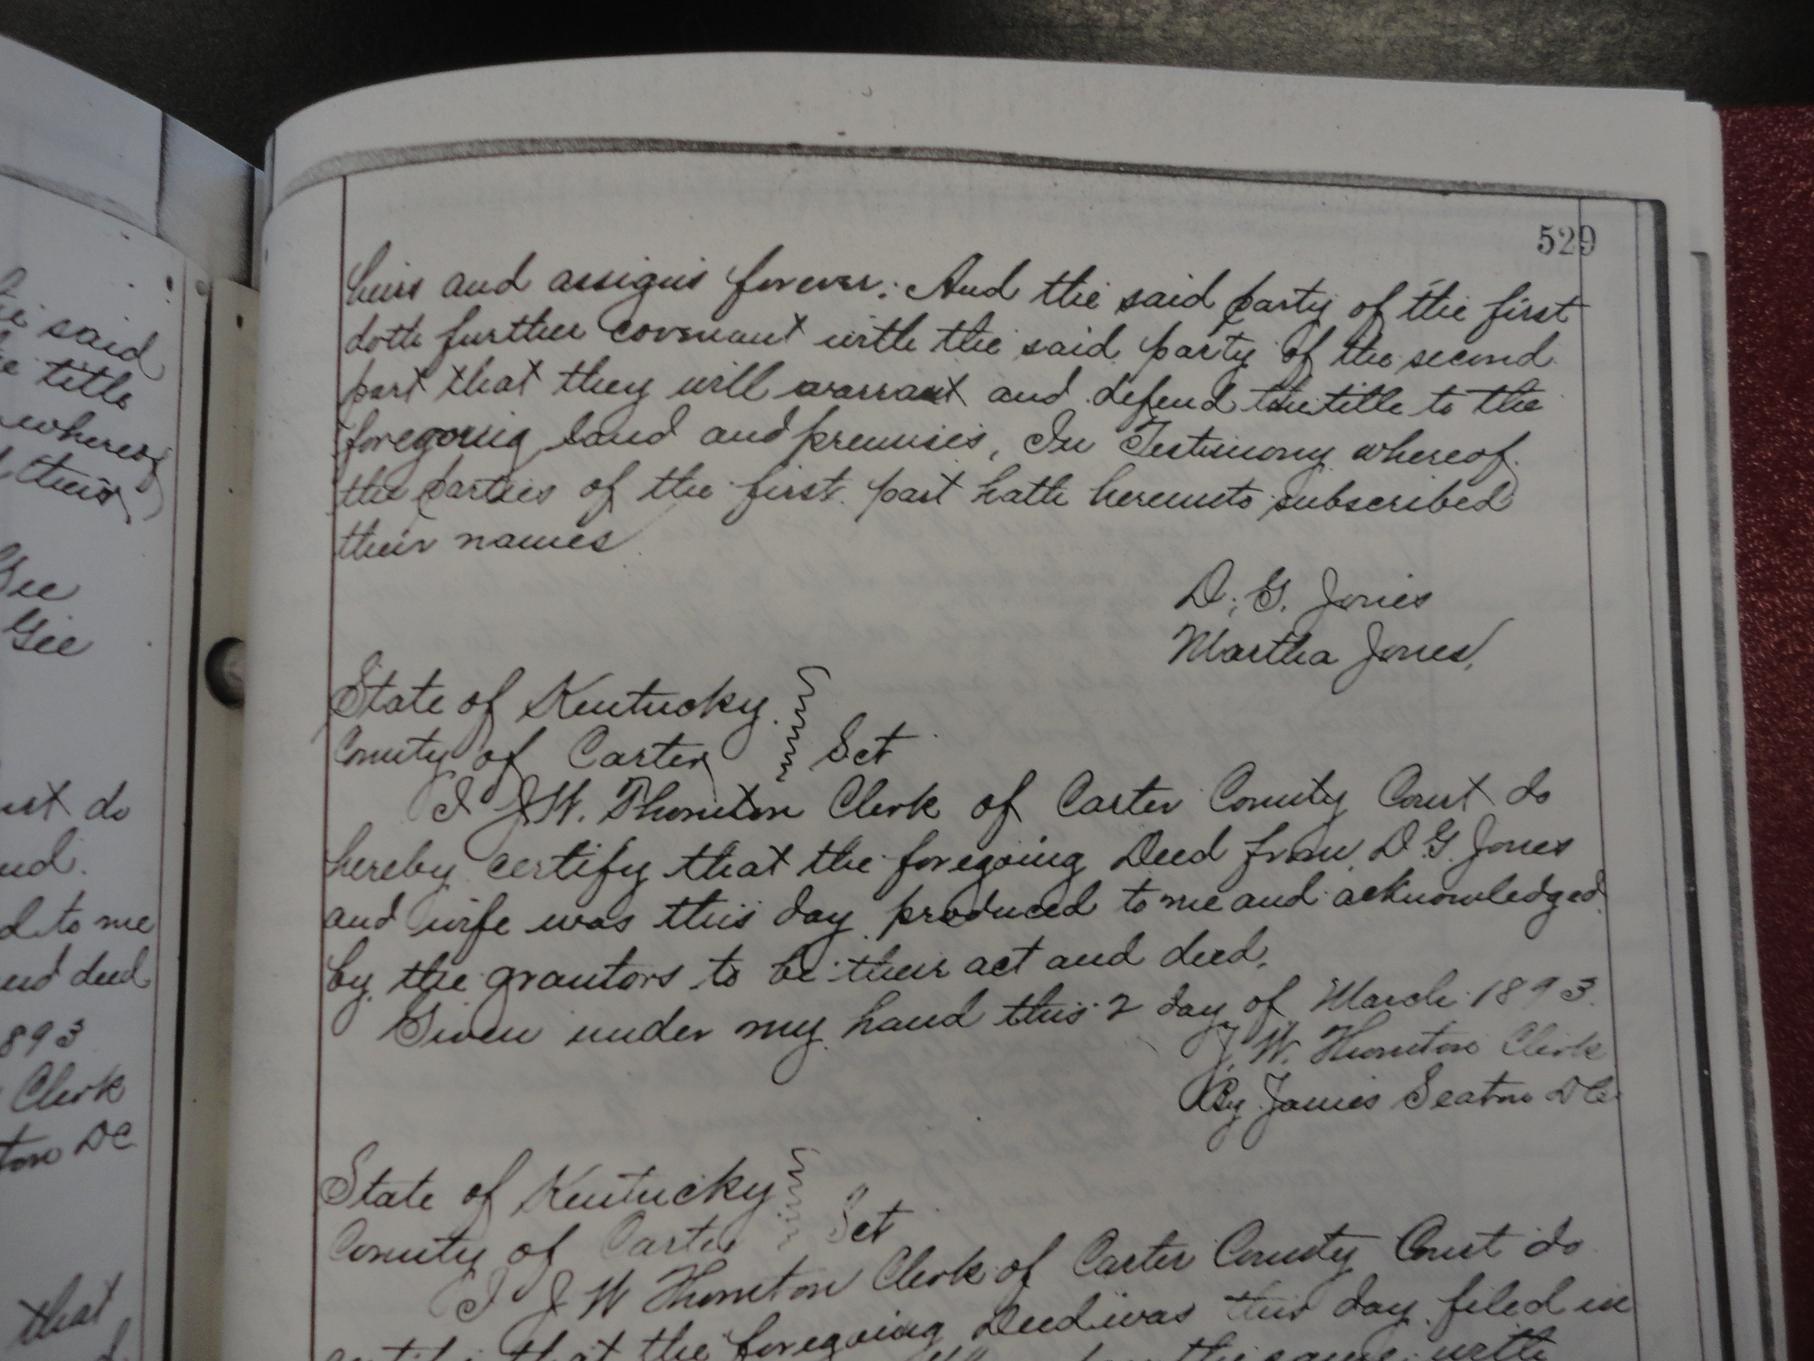 529
heirs and assigns forever. And the said party of the first
doth further covenant with the said party of the second
part that they will warrant and defend the title to the
foregoing land and premises, In Testimony whereof
the parties of the first part hath hereunto subscribed
their names
D. G. Jones
Martha Jones,
State of Kentucky
County of Carter Sct
I J. W. Thornton Clerk of Carter County Court do
hereby certify that the foregoing Deed from D. G. Jones
and wife was this day produced to me and acknowledged
by the grantors to be their act and deed.
Given under my hand this 2 day of March 1893.
J. W. Thornton Clerk
By James Seaton D C
State of Kentucky
County of Carter Sct
I J W Thornton Clerk of Carter County Court do
certify that the foregoing Deed was this day filed in
the same with
said
title
whereof
their
Gee
Gee
do
d to me
deed
1893
Clerk
DC
that